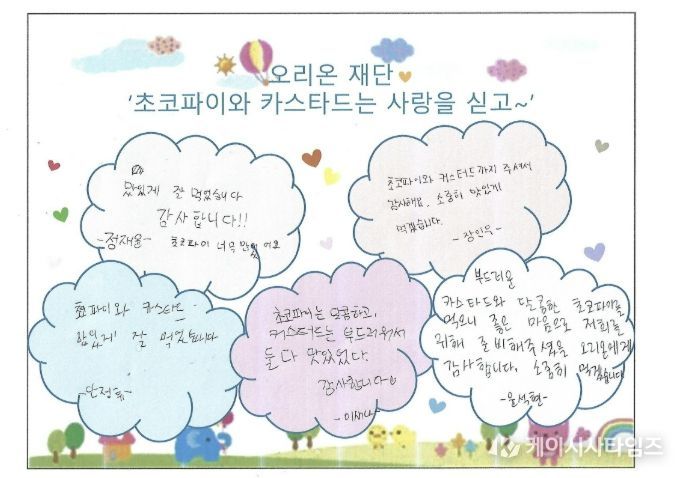 오리온 재단
'초코파이와 카스타드는 사랑을 싣고~'
맛있게 잘 먹었습니다
감사합니다!!
-정재율- 초코파이 너무 맛있어요
초코파이와 커스터드까지 주셔서
감사해요. 소중히 맛있게
먹겠습니다.
-장인우-
초코파이와 카스타드
맛있게 잘 먹었습니다
초코파이는 달콤하고,
커스터드는 부드러워서
둘 다 맛있었다.
감사합니다
부드러운
카스타드와 달콤한 초코파이를
먹으니 좋은 마음으로 저희를
위해 준비해주셨을 오리온에게
감사합니다. 소중히 먹겠습니다
-윤석현-
케이시사타임즈